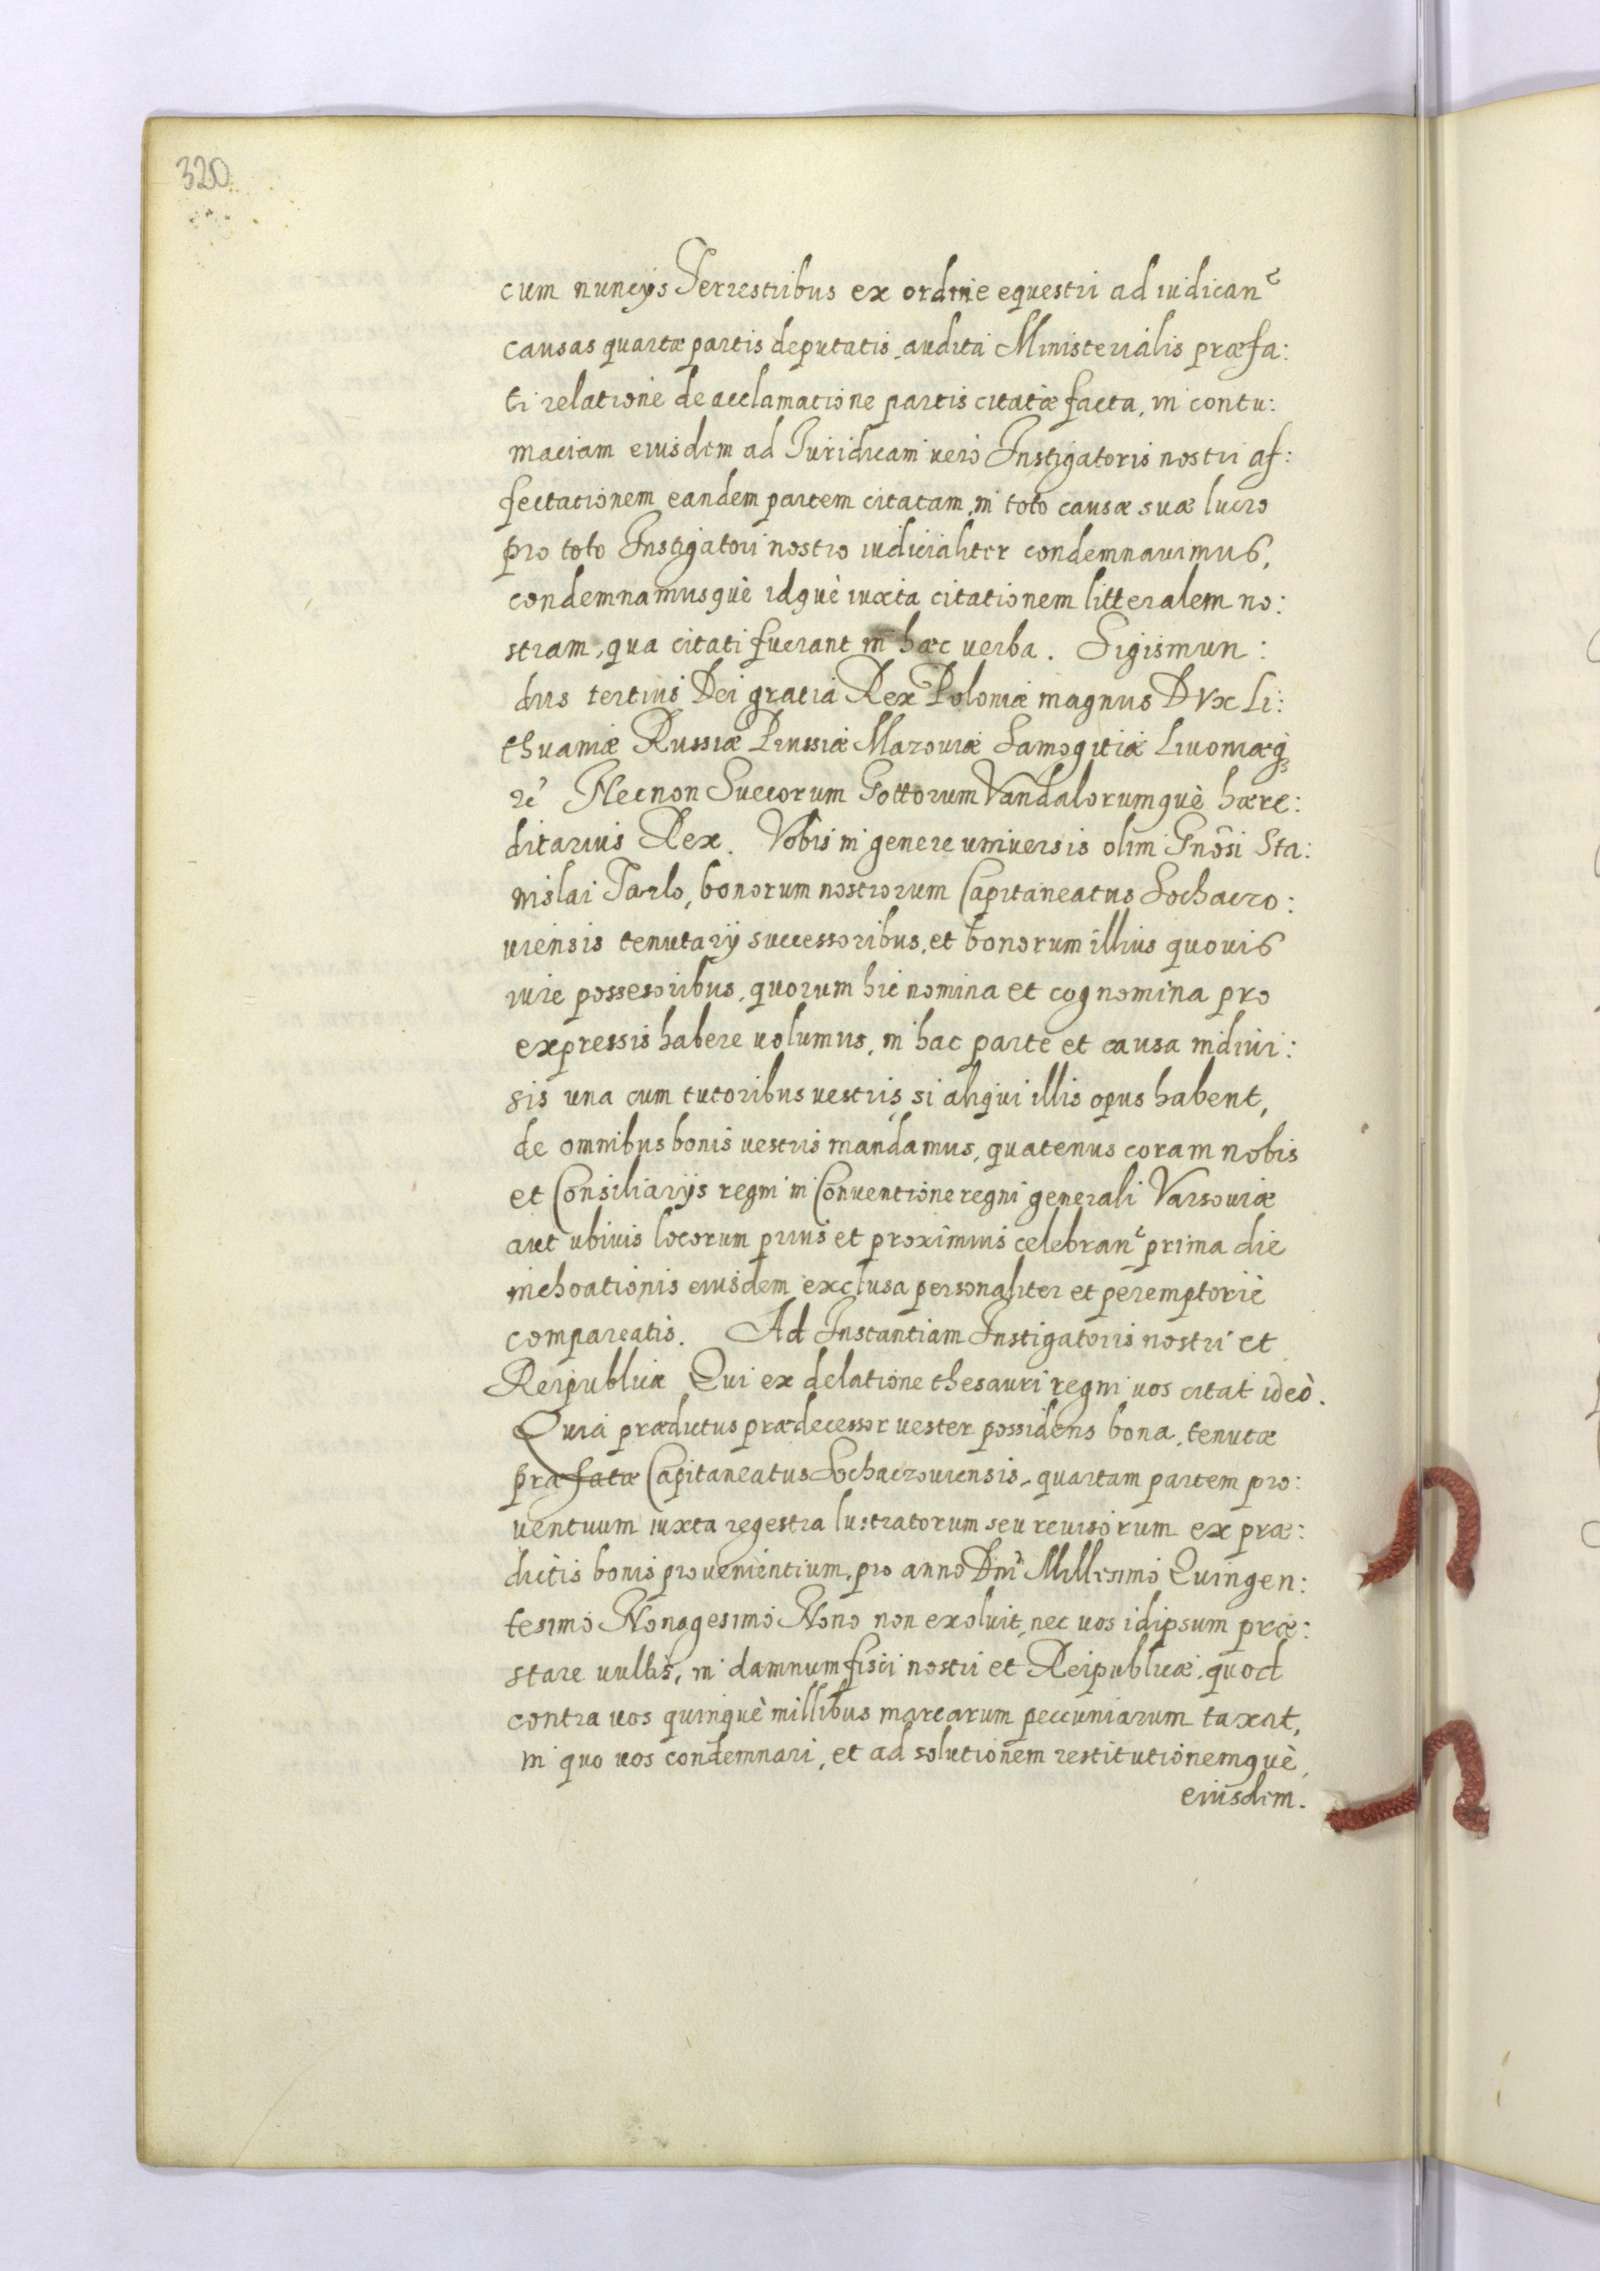 320
cum nuncijs Terrestribus ex ordine equestri ad iudicanᵉ
causas quartæ partis deputatis, audita Ministerialis præfa:
ti relatione de acclamatione partis citatæ facta, in contu:
maciam eiusdem ad Iuridicam verò Instigatoris nostri af:
fectationem eandem partem citatam, in toto causæ suæ lucro
pro toto Instigatori nostro iudicialiter condemnauimus,
condemnamusquè idquè iuxta citationem litteralem no:
stram, qua citati fuerant in hæc verba. Sigismun:
dus tertius Dei gratia Rex Poloniæ magnus Dux Li:
thuaniæ Russiæ Prussiæ Mazouiæ Samogitiæ Liuoniæq̃
zc̃ Necnon Suecorum Gottorum Vandalorumquè hære:
ditarius Rex. Vobis in genere vniuersis olim Gnõsi Sta:
nislai Tarlo, bonorum nostrorum Capitaneatus Sochaczo:
uiensis tenutarij successoribus, et bonorum illius quouis
iure possesoribus, quorum hic nomina et cognomina pro
expressis habere volumus, in hac parte et causa indiui:
sis vna cum tutoribus vestris, si aliqui illis opus habent,
de omnibus bonis vestris mandamus, quatenus coram nobis
et Consiliarijs regni in Conuentione regni generali Varsouiæ
aut vbiuis locorum prius et proximius celebranᵉ prima die
inchoationis eiusdem exclusa personaliter et peremptoriè
compareatis. Ad Instantiam Instigatoris nostri et
Reipublicæ Qui ex delatione thesauri regni vos citat ideò.
Quia prædictus prædecessor vester possidens bona, tenutæ
præfatæ Capitaneatus Sochaczouiensis, quartam partem pro:
uentuum iuxta regestra lustratorum seu reuisorum ex præ:
dictis bonis prouenientium, pro anno Dni Millesimo Quingen:
tesimo Nonagesimo Nono non exoluit, nec vos idipsum præ:
stare vultis, in damnum fisci nostri et Reipublicæ, quod
contra vos quinquè millibus marcarum peccuniarum taxat,
in quo vos condemnari, et ad solutionem restitutionemquè,
eiusdem.